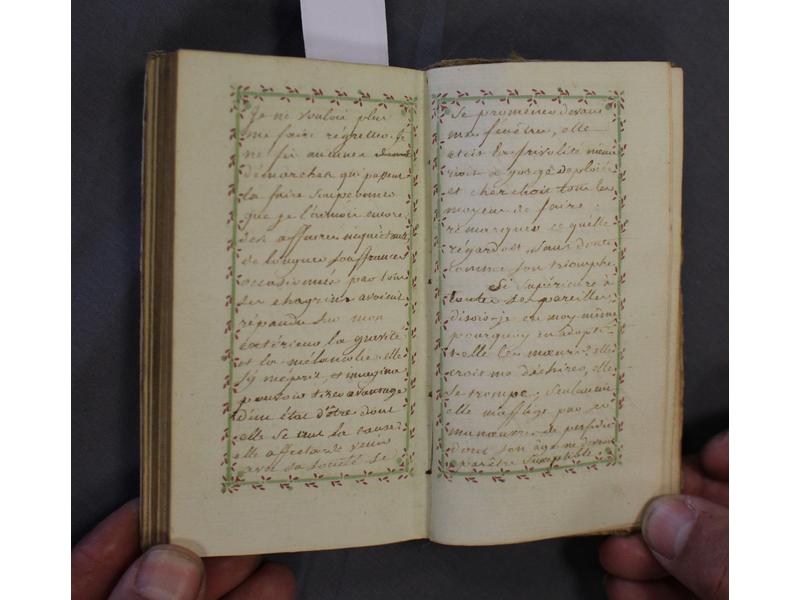 Je ne voulois plus
me faire régretter. Je
ne fis aucunes
démarches qui pussent
la faire
que je l'aimois encore,
des affaires inquiétantes
de longues souffrances
occasionnées par tous
ses chagrins avoient
répandu sur mon
extérieur la gravité
et la mélancolie. elle
s'y méprit, et imagina
pouvoir tirer avantage
d'un état d'être dont
elle se crut la cause.
elle affecta de venir
avec sa société se
Se promener devant
ma fenêtre, elle
etoit la frivolité même
et cherchoit tous les
moyens de faire
remarquer ce quelle
régardoit, sans doute
comme son triomphe
Si Supérieure à
toutes ses pareilles
disois-je en moy même
pourquoy en adopte
t-elle les mœurs? elle
croit me déchirer, elle
Se trompe, Seulement
elle m'afflige par ce
manœuvre de perfidie
dont son âge ne devroit
parêtre Susceptible.